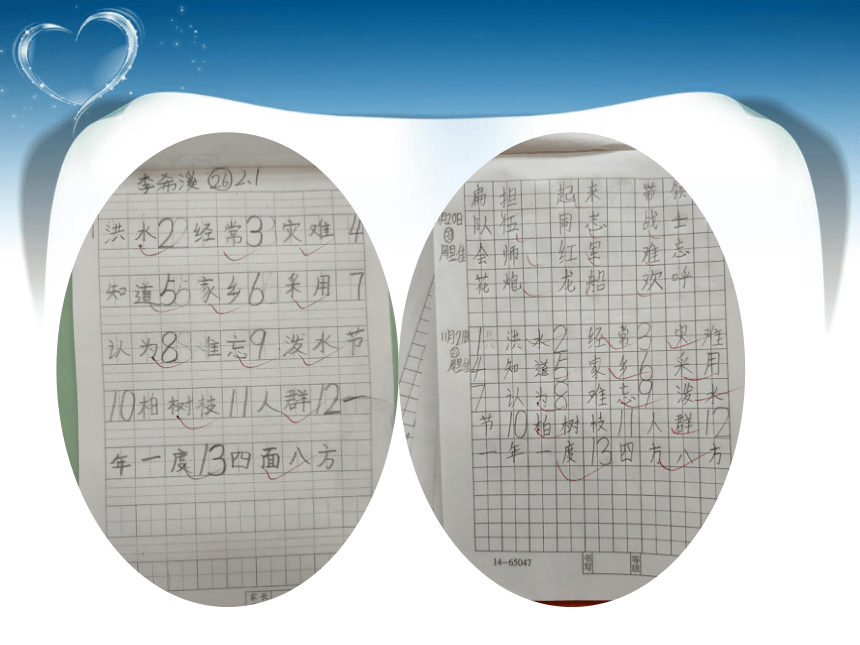 李希溪 26 2.1
洪水2经常3灾难4
知道5家乡6采用7
认为8难忘9泼水节
10柏树枝11人群12一
年一度13四面八方
家长
扁担 起来 带领
队伍 同志 战士
会师 红军 难忘
花炮 龙船 欢呼
月20日
11月21日
1洪水2经常3灾难
4知道5家乡6采用
7认为8难忘9泼水
节10柏树枝11人群12
一年一度13四方八方
14-65047
书写
等级